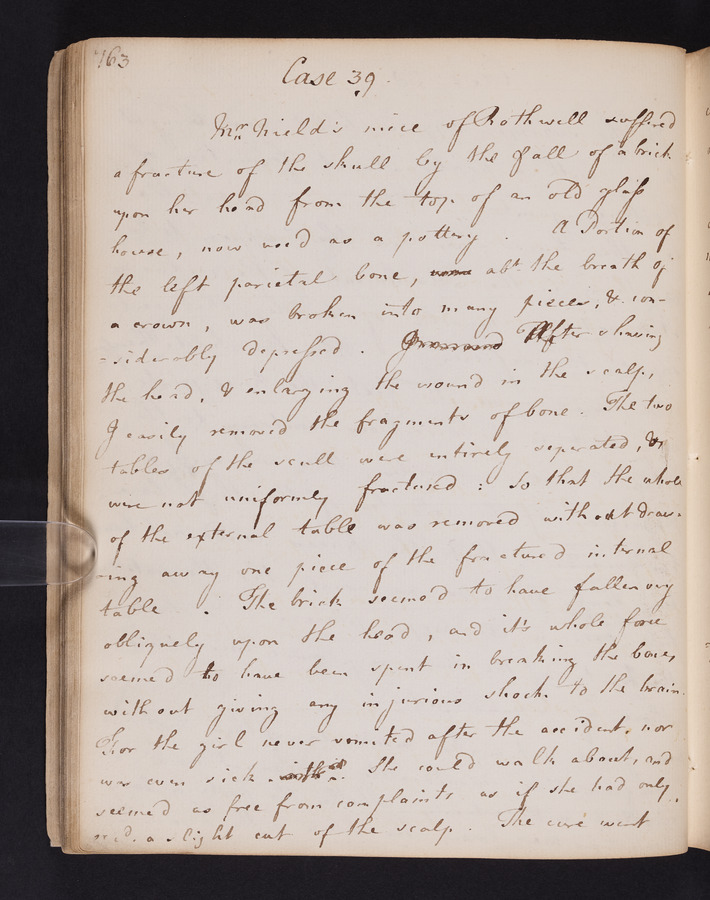 163
Case 39.
Mrs. Nield's niece of Rothwell suffered
a fracture of the skull by the fall of a brick
upon her head from the top of an old glass
house, now used as a pottery. A Portion of
the left parietal bone, abt. the breath of
a crown, was broken into many pieces, & con-
-siderably depressed. After shaving
the head, & enlarging the wound in the scalp,
I easily removed the fragments of bone. The two
tables of the scull were entirely separated, &
were not uniformly fractured: So that the whole
of the external table was removed without draw-
-ing away one piece of the fractured internal
table. The brick seemed to have fallen very
obliquely upon the head, and it's whole force
seemed to have been spent in breaking the bone,
without giving any injurious shock to the brain.
For the girl never vomited after the accident, nor
was even sick. She could walk about, and
seemed as free from complaints as if she had only
recd. a slight cut of the scalp. The cure went